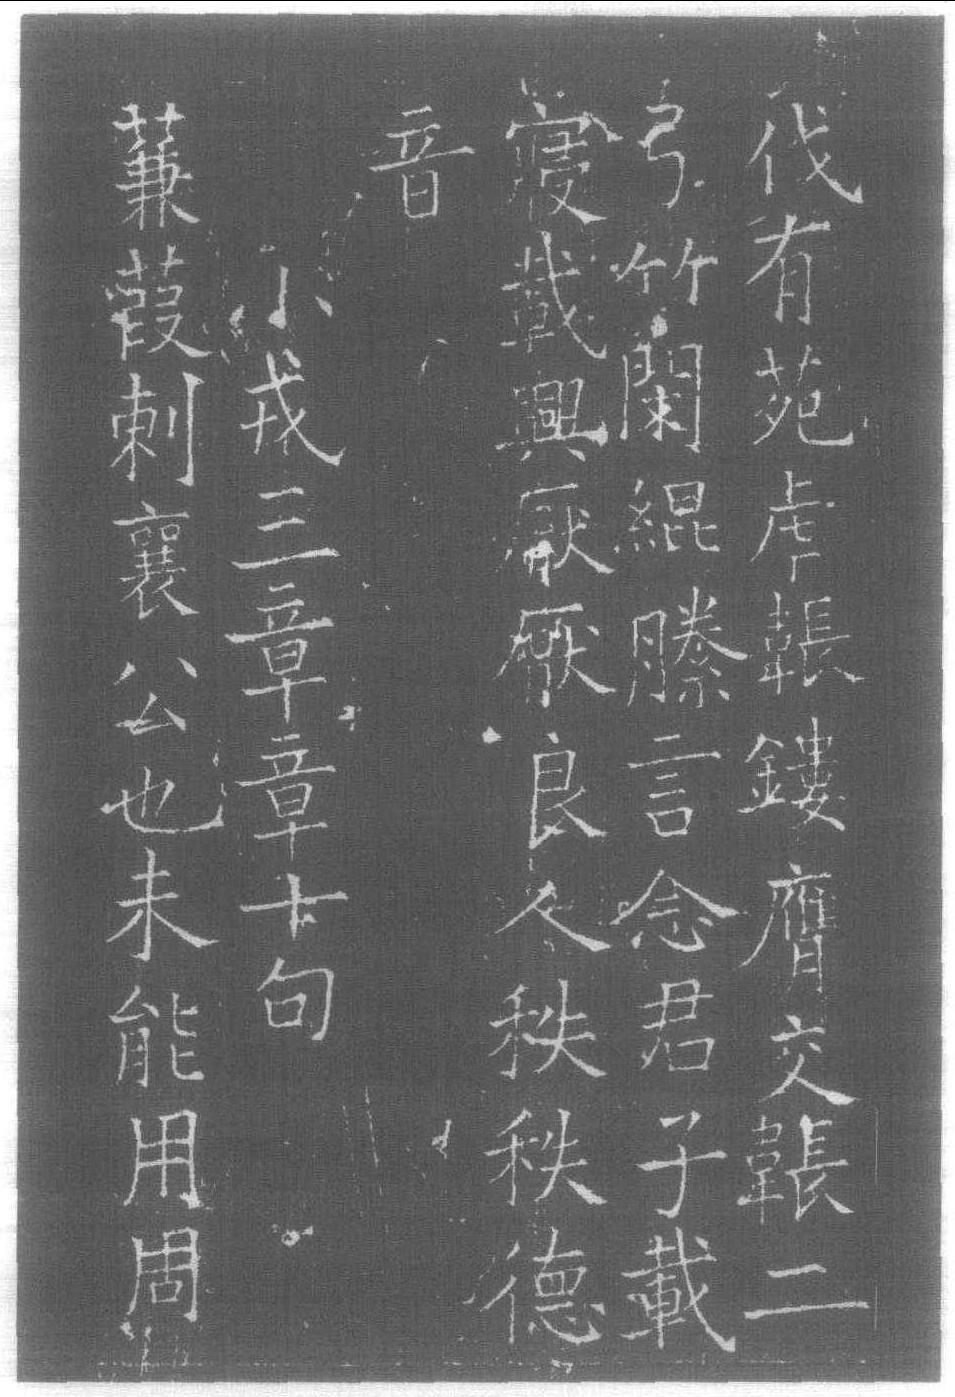 伐有苑虎韔鏤膺交韔二
弓竹閟緄縢言念君子載
寢載興厭厭良人秩秩德
音
小戎三章章十句
蒹葭刺襄公也未能用周